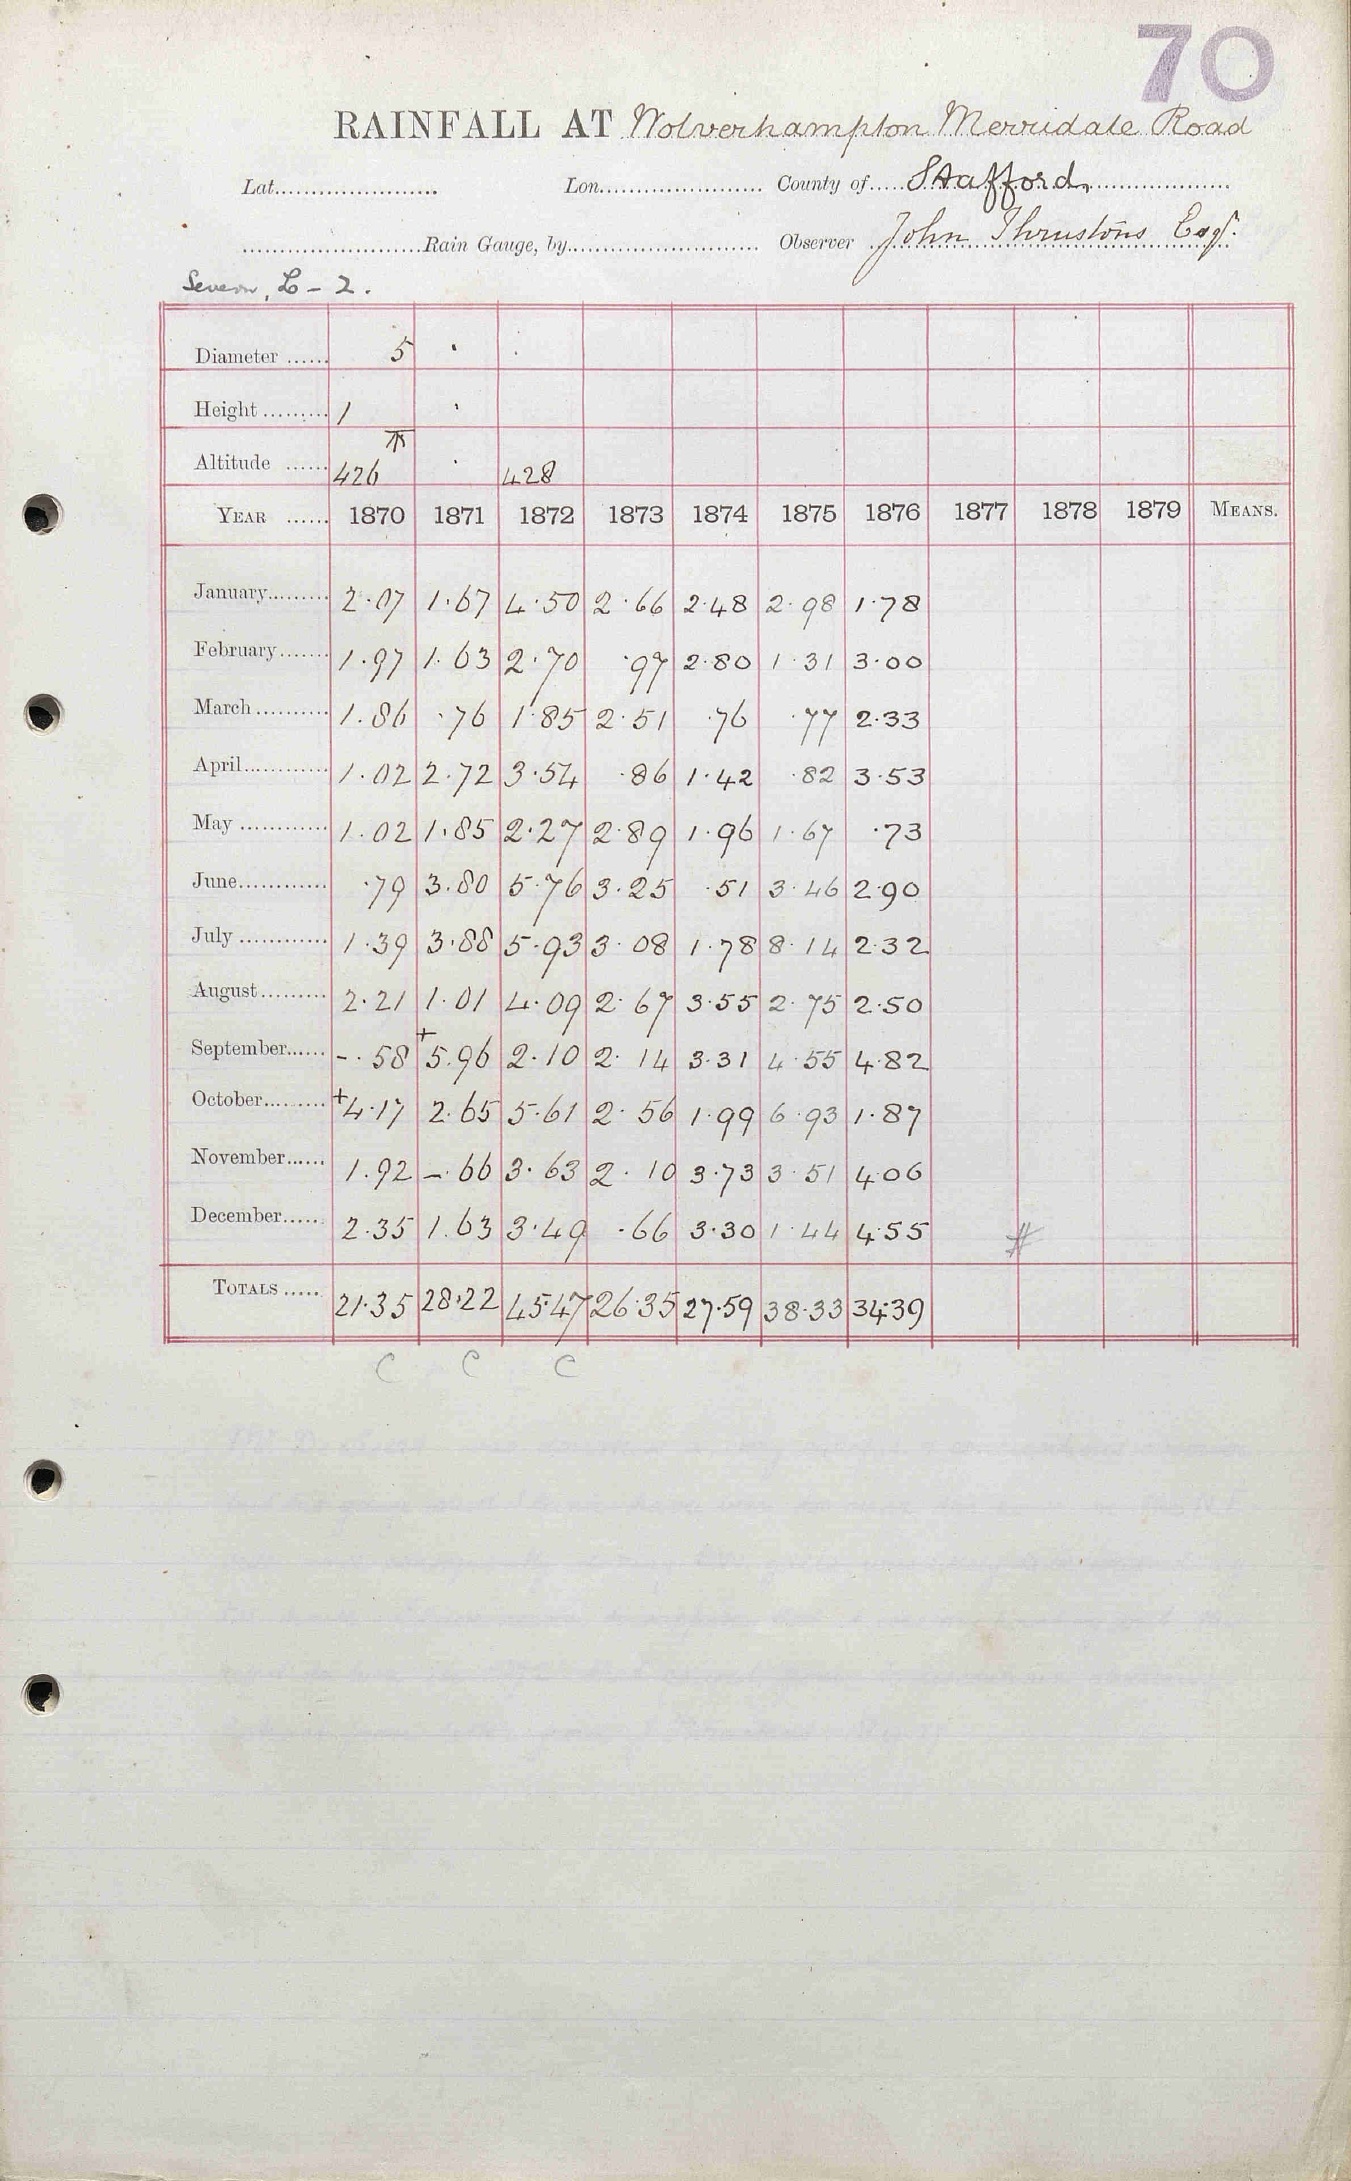 70
RAINFALL AT Wolverhampton Merridale Road
Lat...................... Lon...................... County of.....Stafford.....................
........................Rain Gauge, by.......................... Observer ..John Thrustons Esqr.
Severn, L - 2.
Diameter ...... 5 · ·
Height ......... 1 ·
Altitude ...... 426 · 428
YEAR ...... 1870 1871 1872 1873 1874 1875 1876 1877 1878 1879 MEANS.
January......... 2.07 1.67 4.50 2.66 2.48 2.98 1.78
February....... 1.97 1.63 2.70 .97 2.80 1.31 3.00
March .......... 1.86 .76 1.85 2.51 .76 .77 2.33
April............ 1.02 2.72 3.54 .86 1.42 .82 3.53
May ............ 1.02 1.85 2.27 2.89 1.96 1.67 .73
June............ .79 3.80 5.76 3.25 .51 3.46 2.90
July ............ 1.39 3.88 5.93 3.08 1.78 8.14 2.32
August......... 2.21 1.01 4.09 2.67 3.55 2.75 2.50
September...... -.58 +5.96 2.10 2.14 3.31 4.55 4.82
October......... +4.17 2.65 5.61 2.56 1.99 6.93 1.87
November...... 1.92 -.66 3.63 2.10 3.73 3.51 4.06
December...... 2.35 1.63 3.49 .66 3.30 1.44 4.55 #
TOTALS ..... 21.35 28.22 45.47 26.35 27.59 38.33 34.39
C C C